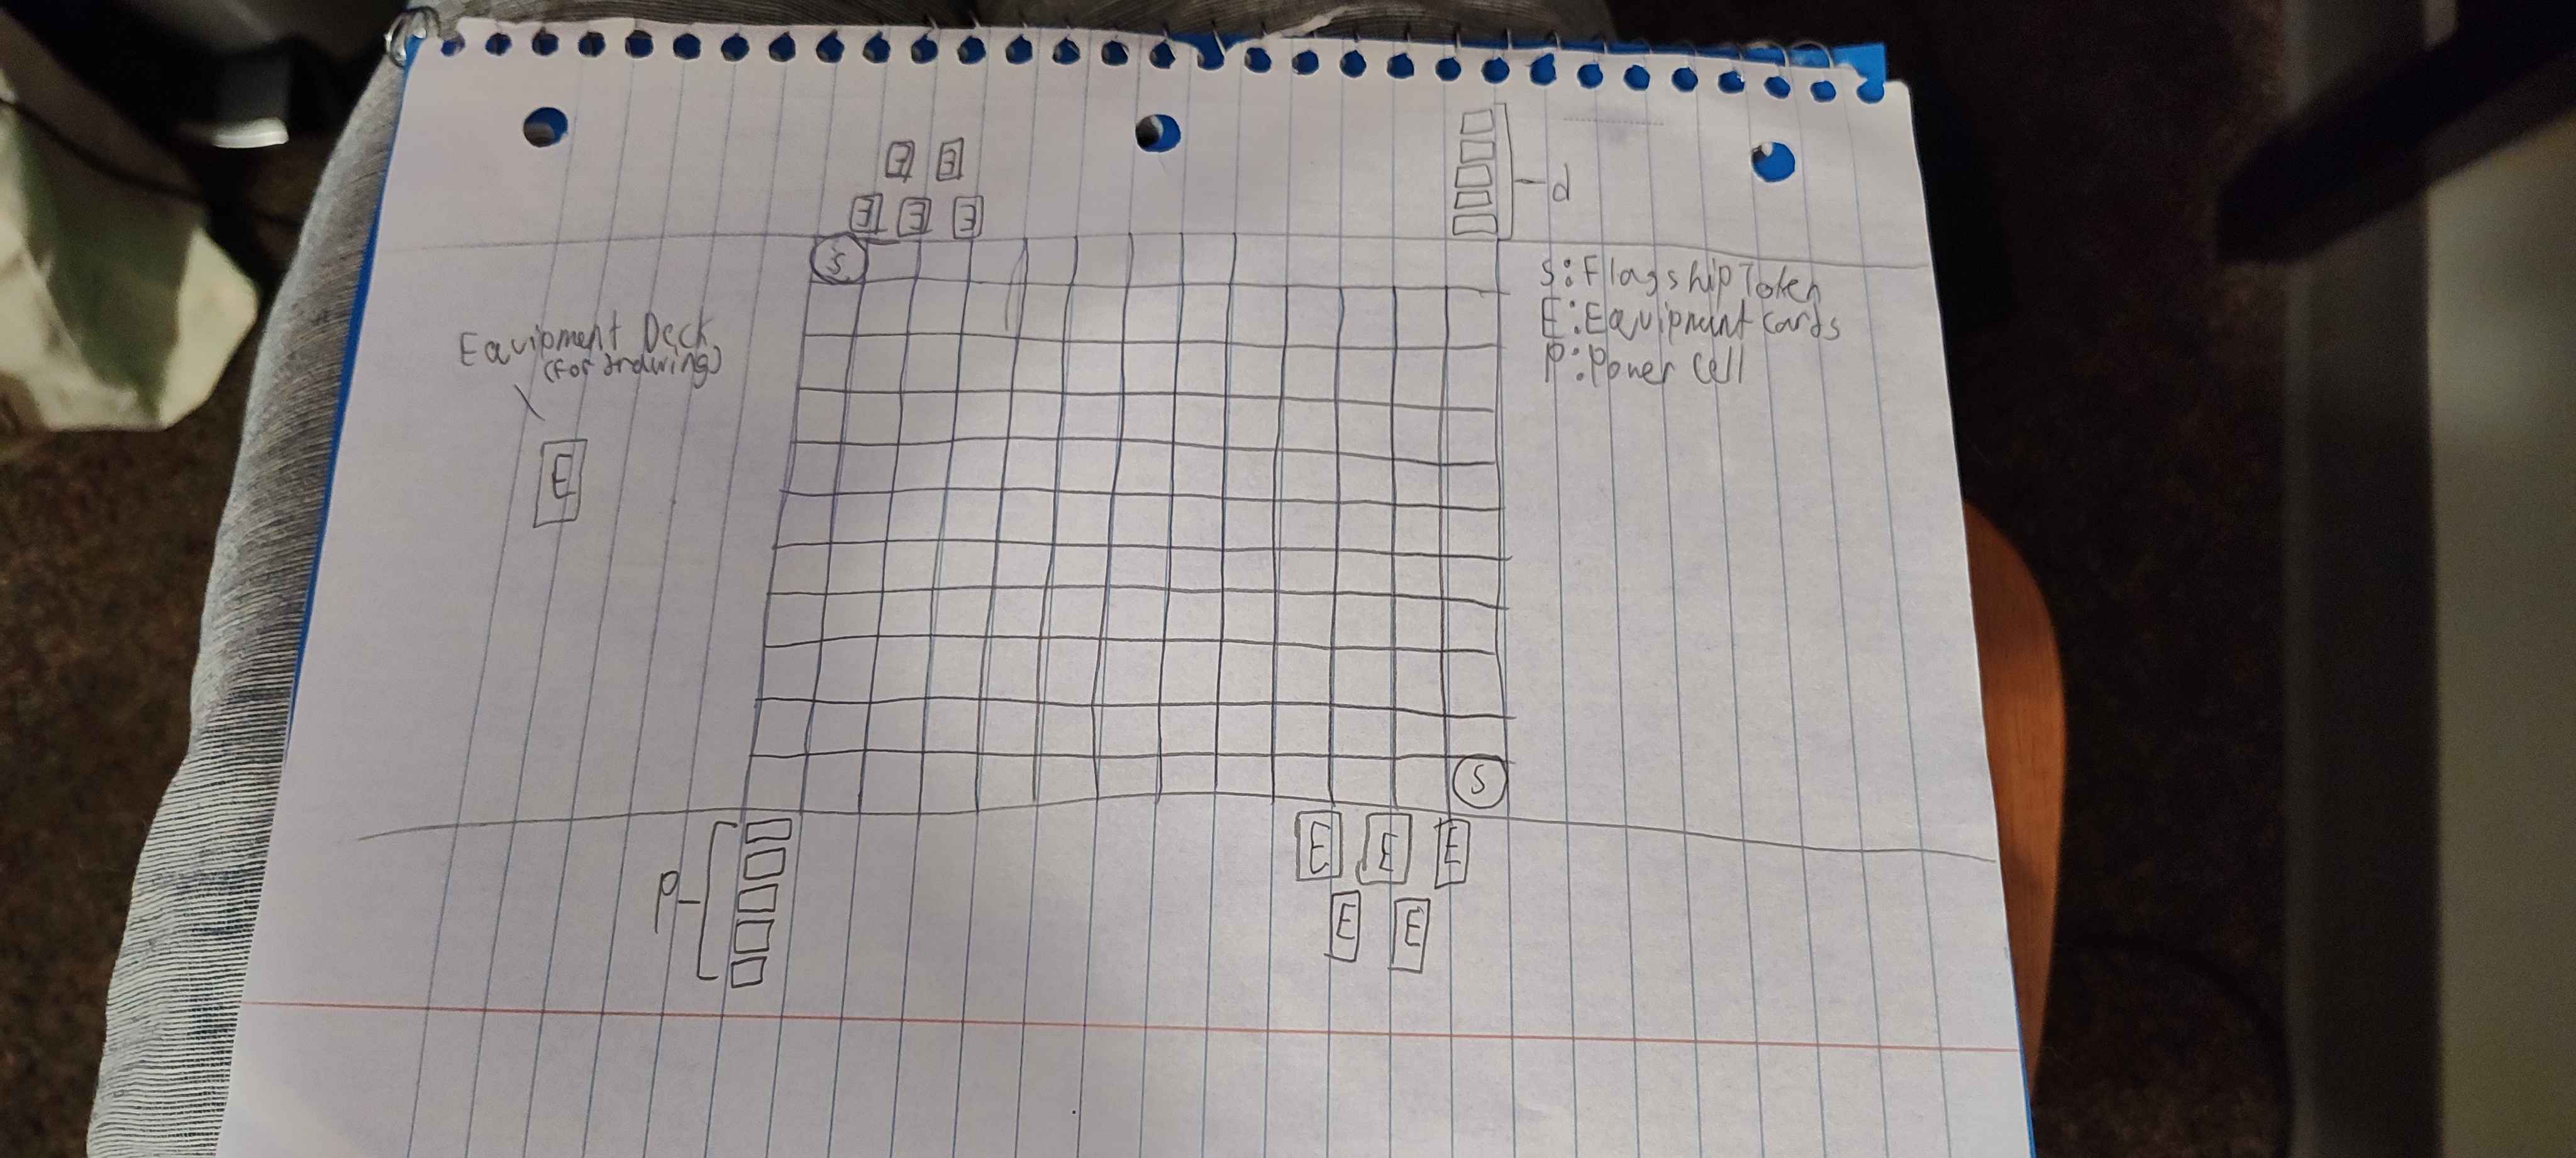 E E
E E E
d
S
S:Flagship Token
E:Equipment cards
P:Power Cell
Equipment Deck
(For drawing)
E
S
P
E E E
E E